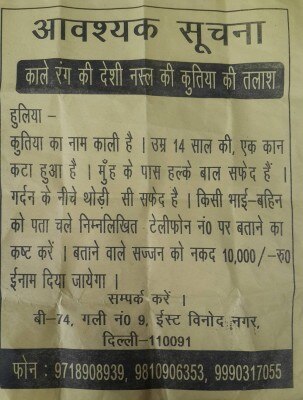 आवश्यक सूचना
काले रंग की देशी नस्ल की कुतिया की तलाश
हुलिया –
कुतिया का नाम काली है । उम्र 14 साल की, एक कान
कटा हुआ है । मुँह के पास हल्के बाल सफेद हैं ।
गर्दन के नीचे थोड़ी सी सफेद है । किसी भाई-बहिन
को पता चले निम्नलिखित टेलीफोन नं० पर बताने का
कष्ट करें । बताने वाले सज्जन को नकद 10,000/-रु0
ईनाम दिया जायेगा ।
सम्पर्क करें ।
बी-74, गली नं0 9, ईस्ट विनोद नगर,
दिल्ली-110091
फोन : 9718908939, 9810906353, 9990317055